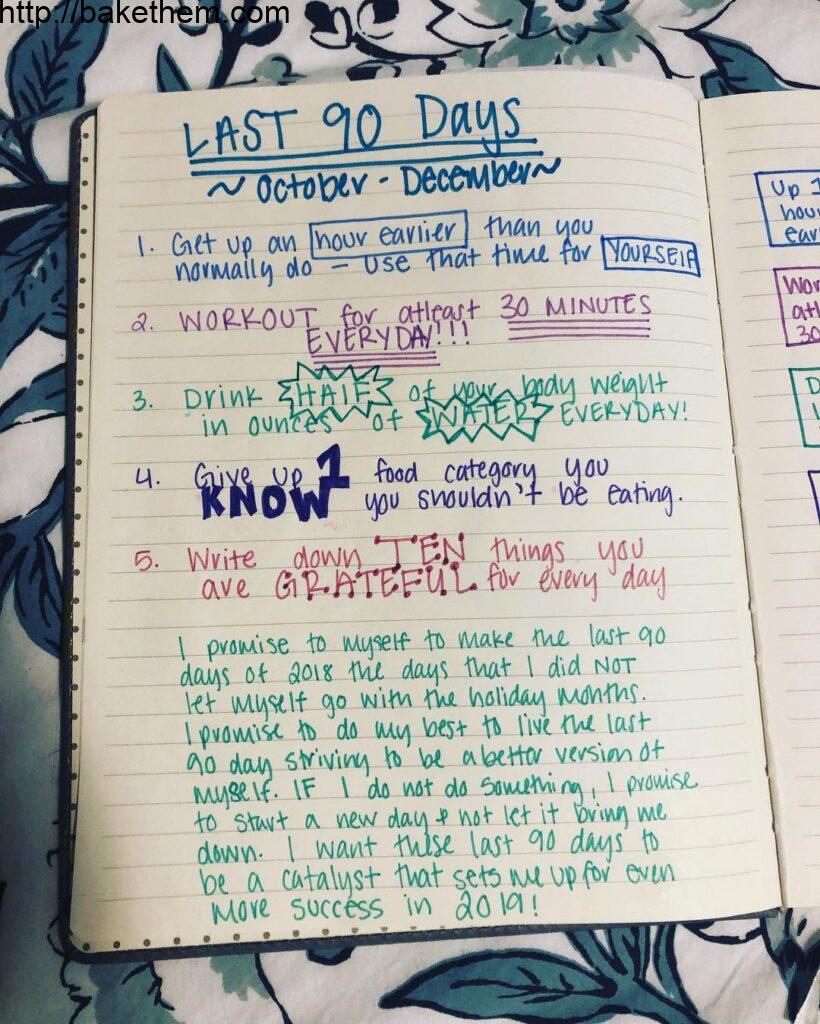 http://bakethem.com
LAST 90 Days
~ October - December ~
1. Get up an hour earlier than you
normally do - use that time for YOURSELF
2. WORKOUT for atleast 30 MINUTES
EVERYDAY!!!
3. Drink HALF of your body weight
in ounces of WATER EVERYDAY!
4. Give up 1 food category you
KNOW you shouldn't be eating.
5. Write down TEN things you
are GRATEFUL for every day
I promise to myself to make the last 90
days of 2018 the days that I did NOT
let myself go with the holiday months.
I promise to do my best to live the last
90 day striving to be a better version of
myself. IF I do not do something, I promise
to start a new day & not let it bring me
down. I want these last 90 days to
be a catalyst that sets me up for even
more success in 2019!
Up
hou
earl
Wor
atl
30
D